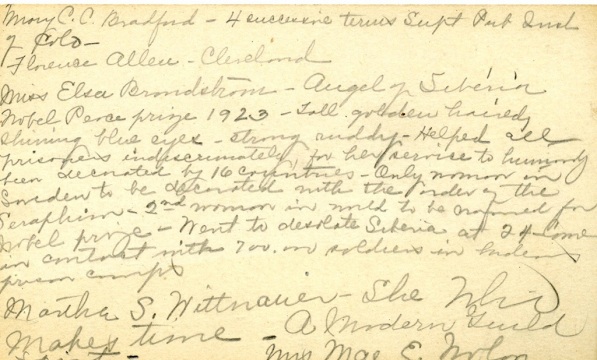 Mary C. C. Bradford - 4 successive terms Supt Pub Inst
of Colo -
Florence Allen - Cleveland
Miss Elsa Brandstrom - Angel of Siberia
Nobel Peace prize 1923 - Tall golden haired
shining blue eyes - strong ruddy - Helped all
prisoners indiscriminately, for her service to humanity
been decorated by 16 countries - Only woman in
Sweden to be decorated with the order of the
Seraphim - 2nd woman in world to be named for
Nobel prize - Went to desolate Siberia at 24 - Came
in contact with 700.000 soldiers in
prison camps
Martha S. Wittnauer - She Who
Makes time - A Modern Guild
Miss Mae E.